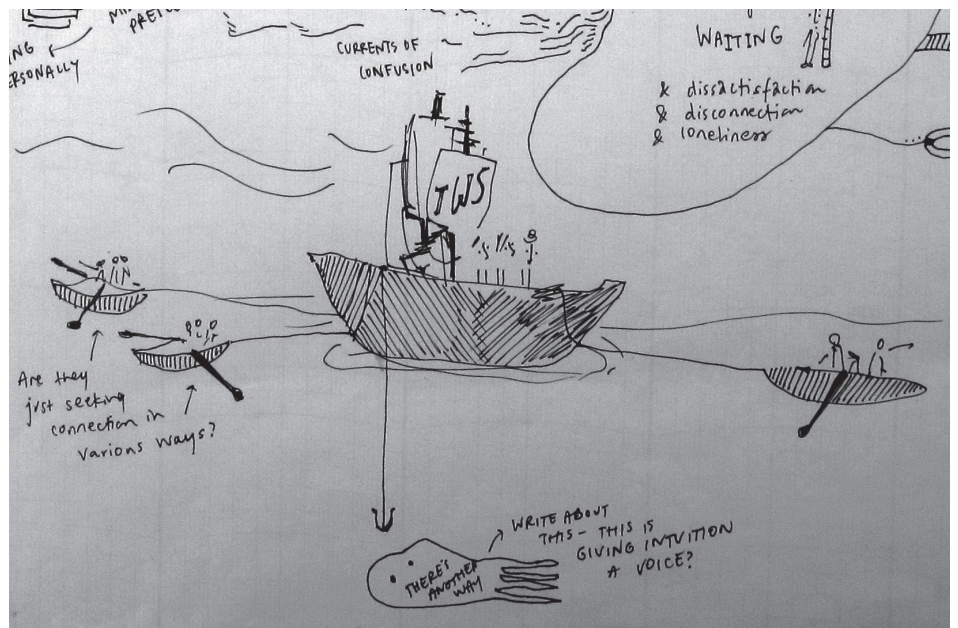 CURRENTS OF
CONFUSION
WAITING
& dissactisfaction
& disconnection
& loneliness
TWS
Are they
just seeking
connection in
various ways?
THERE'S
ANOTHER
WAY
WRITE ABOUT
THIS - THIS IS
GIVING INTUITION
A VOICE?